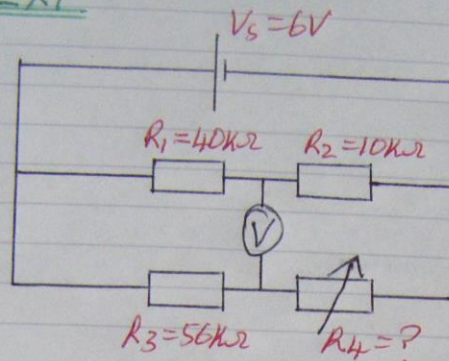 Vs=6V
R1=40KΩ R2=10KΩ
V
R3=56KΩ R4=?